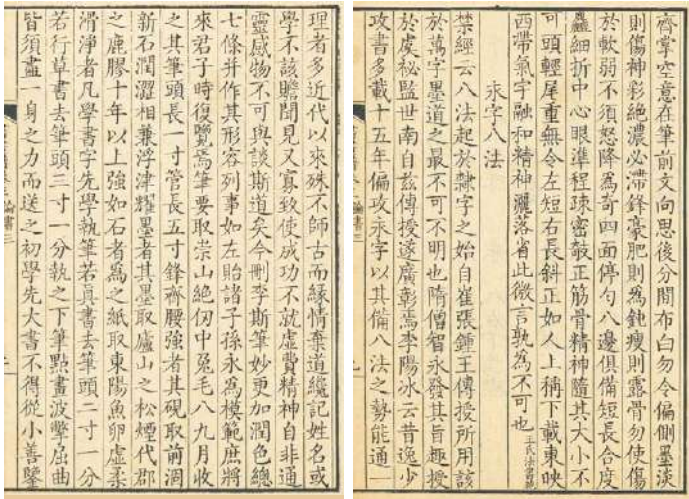 齊掌空意在筆前文向思後分間布白勿令偏側墨淡
則傷神彩絕濃必滯鋒毫肥則為鈍瘦則露骨勿使傷
於軟弱不須怒降為奇四面停勻八邊俱備短長合度
麤細折中心眼準程疎密欹正筋骨精神隨其大小不
可頭輕尾重無令左短右長斜正如人上稱下載東映
西帶氣宇融和精神灑落省此微言孰為不可也王氏法書苑
永字八法
禁經云八法起於隸字之始自崔張鍾王傳授所用該
於萬字墨道之最不可不明也隋僧智永發其旨趣授
於虞祕監世南自兹傳授遂廣彰焉李陽冰云昔逸少
攻書多載十五年偏攻永字以其備八法之勢能通一
理者多近代以來殊不師古而緣情棄道纔記姓名或
學不該贍聞見又寡致使成功不就虛費精神自非通
靈感物不可與談斯道矣今刪李斯筆妙更加潤色總
七條并作其形容列事如左貽諸子孫永為模範庶將
來君子時復覽焉筆要取崇山絕仞中兔毛八九月收
之其筆頭長一寸管長五寸鋒齊腰強者其硯取前涸
新石潤澀相兼浮津耀墨者其墨取廬山之松煙代郡
之鹿膠十年以上強如石者為之紙取東陽魚卵虛柔
滑淨者凡學書字先學執筆若真書去筆頭二寸一分
若行草書去筆頭三寸一分執之下筆點畫波撆屈曲
皆須盡一身之力而送之初學先大書不得從小善鑒